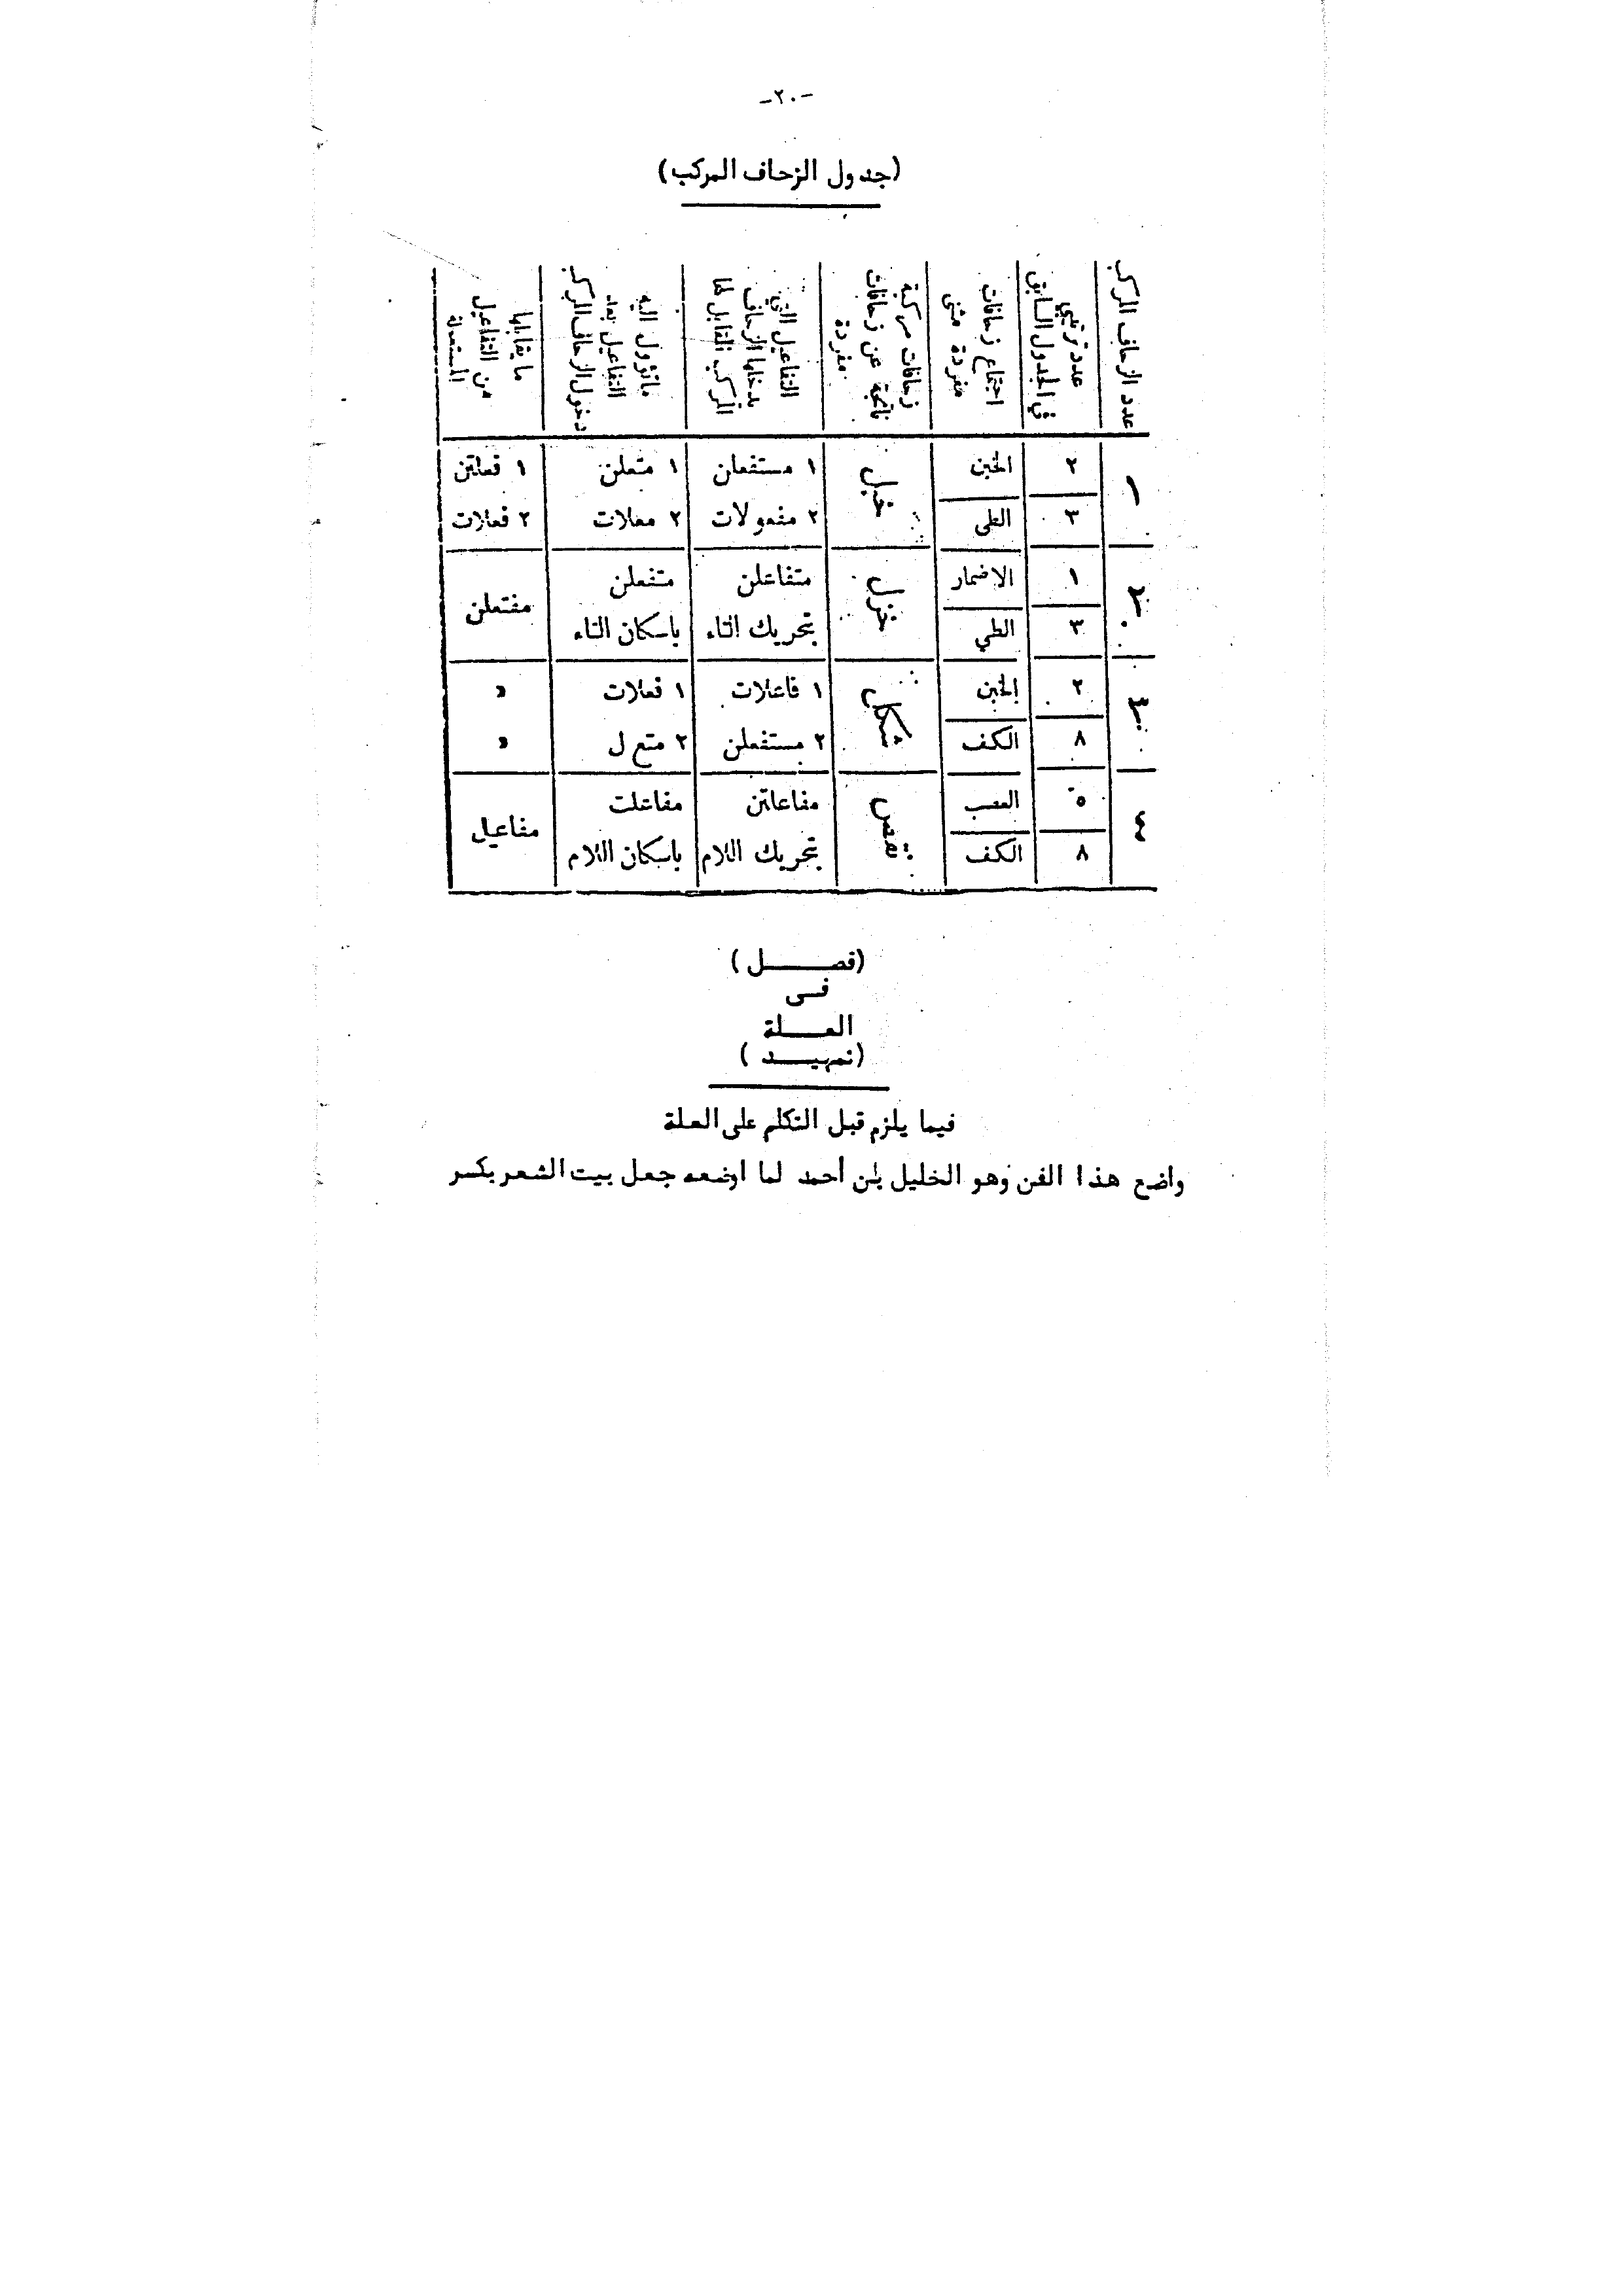 -٢٠-
(جدول الزحاف المركب)
عدد الزحاف المركب
عدد ترتيبي
في الجدول السابق
اجتماع زحافات
مفردة مثنى
زحافات مركبة
ناتجة عن زحافات
مفردة
التفاعيل التي
يدخلها الزحاف
المركب القابل لها
ماتؤول اليه
التفاعيل بعد
دخول الزحاف المركب
ما يقابلها
من التفاعيل
المستعملة
١ ٢ الخبن خبل ١ مستفعلن ١ متعلن ١ فعلتن
٣ الطي ٢ مفعولات ٢ معلات ٢ فعلات
٢ ١ الاضمار خزل متفاعلن متفعلن مفتعلن
٣ الطي بتحريك التاء باسكان التاء
٣ ٢ الخبن شكل ١ فاعلات ١ فعلات »
٨ الكف ٢ مستفعلن ٢ متع ل »
٤ ٥ العصب نقص مفاعلتن مفاعلت مفاعيل
٨ الكف بتحريك اللام باسكان اللام
(فصـــل)
فـي
العـــلة
(تمهيـــد)
فيما يلزم قبل التكلم على العلة
واضع هذا الفن وهو الخليل بن أحمد لما اوضعه جعل بيت الشعر بكسر